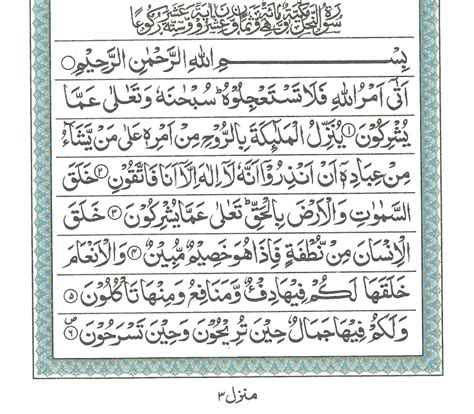 سُوْرَةُ النَّحْلِ مَكِّيَّةٌ وَّهِيَ مِائَةٌ وَّثَمَانٍ وَّعِشْرُوْنَ اٰيَةً وَّسِتَّةَ عَشَرَ رُكُوْعًا
بِسْمِ اللهِ الرَّحْمٰنِ الرَّحِيْمِ ○
اَتٰۤى اَمْرُ اللهِ فَلَا تَسْتَعْجِلُوْهُ ؕ سُبْحٰنَهٗ وَتَعٰلٰى عَمَّا
يُشْرِكُوْنَ ۝۱ يُنَزِّلُ الْمَلٰٓئِكَةَ بِالرُّوْحِ مِنْ اَمْرِهٖ عَلٰى مَنْ يَّشَآءُ
مِنْ عِبَادِهٖۤ اَنْ اَنْذِرُوْۤا اَنَّهٗ لَاۤ اِلٰهَ اِلَّاۤ اَنَا فَاتَّقُوْنِ ۝۲ خَلَقَ
السَّمٰوٰتِ وَالْاَرْضَ بِالْحَقِّ ؕ تَعٰلٰى عَمَّا يُشْرِكُوْنَ ۝۳ خَلَقَ
الْاِنْسَانَ مِنْ نُّطْفَةٍ فَاِذَا هُوَ خَصِيْمٌ مُّبِيْنٌ ۝۴ وَالْاَنْعَامَ
خَلَقَهَا ۚ لَكُمْ فِيْهَا دِفْءٌ وَّمَنَافِعُ وَمِنْهَا تَاْكُلُوْنَ ۝۵
وَلَكُمْ فِيْهَا جَمَالٌ حِيْنَ تُرِيْحُوْنَ وَحِيْنَ تَسْرَحُوْنَ ۝۶ ص
منزل ۳